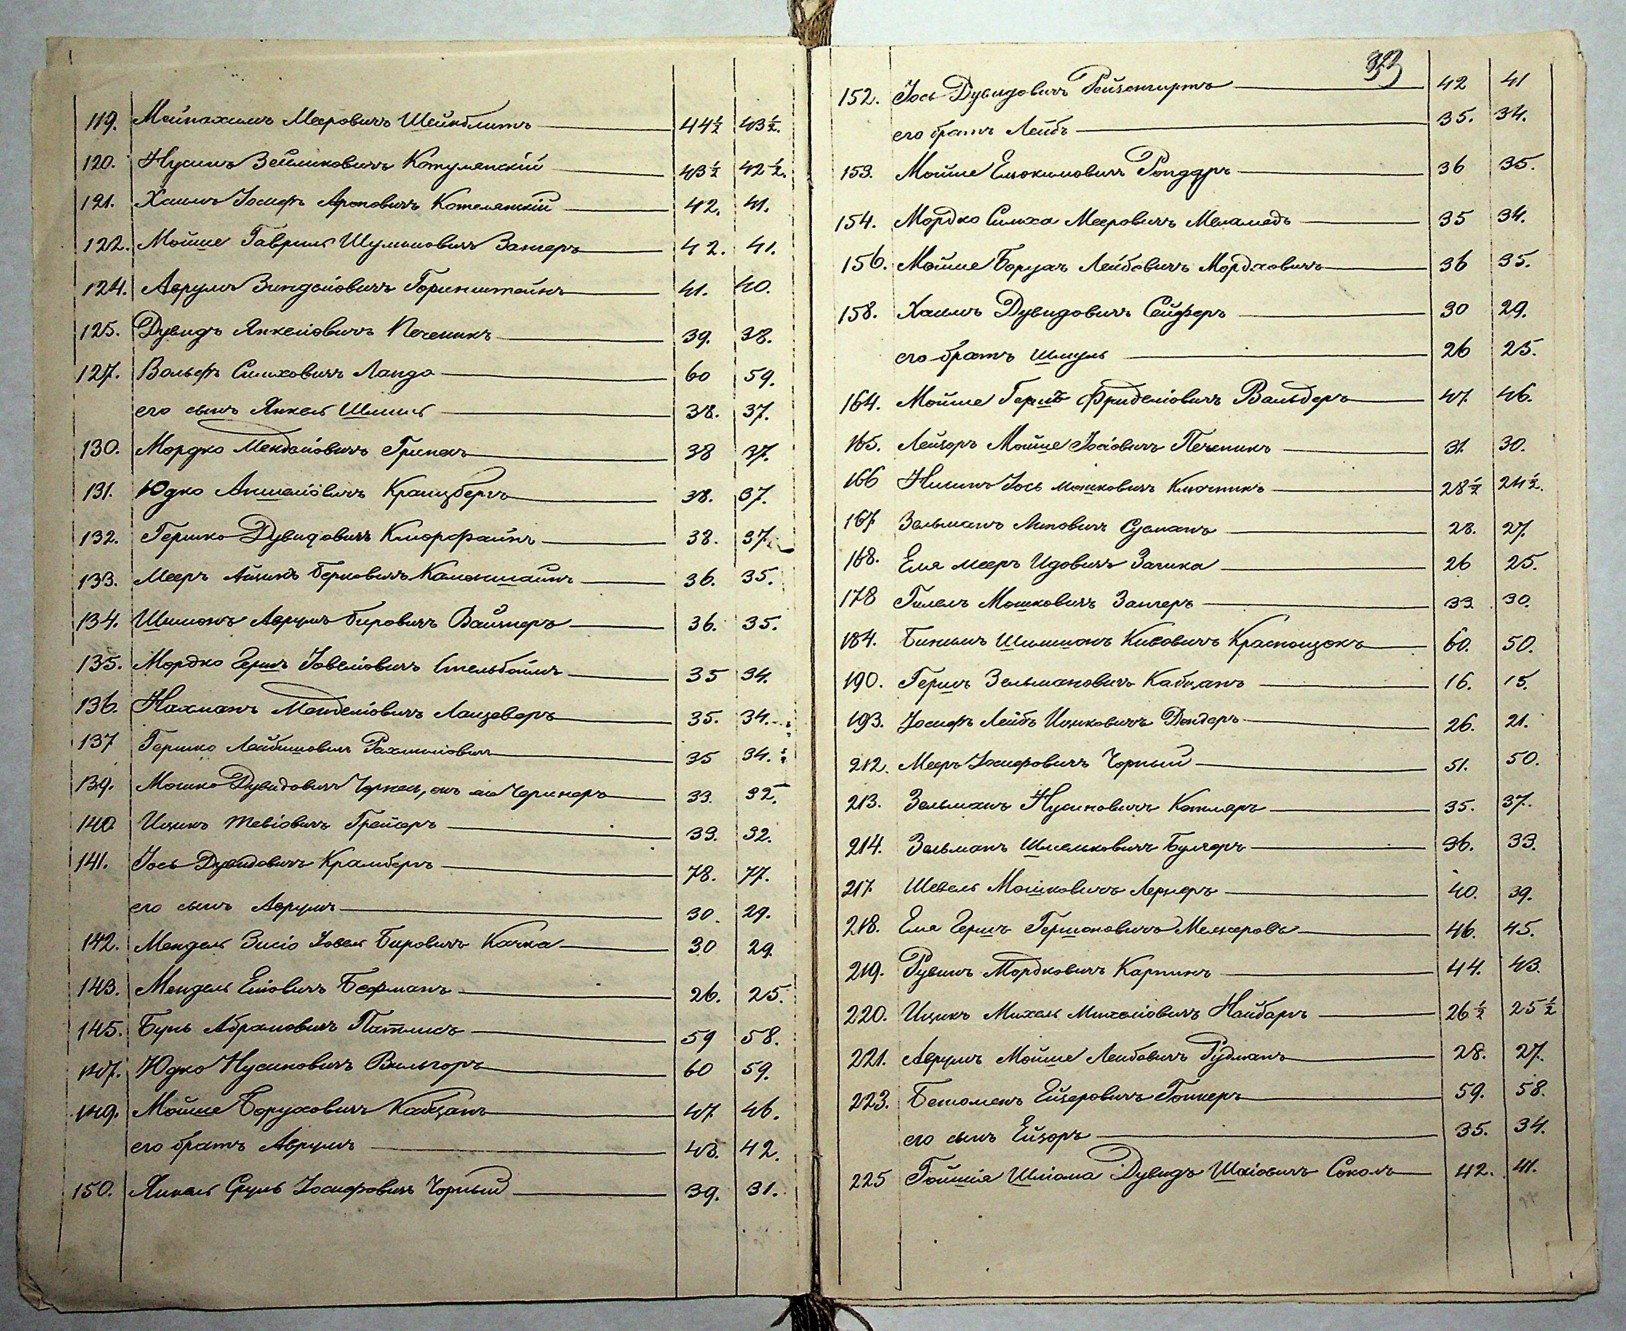 119. Мейнахимъ Мееровичъ Шейнблитъ 44½ 43½.
120. Нусинъ Зейликовичъ Котулянскій 43½ 42½.
121. Хаимъ Іосифъ Ароновичъ Котелянскій 42. 41.
122. Мойше Гавриль Шулимовичъ Зангеръ 42. 41.
124. Аврумъ Зинделіовичъ Горинштейнъ 41. 40.
125. Дувидъ Янкеліовичъ Печеникъ 39. 38.
127. Вольфъ Симховичъ Ланда 60 59.
его сынъ Янкель 38. 37.
130. Мордко Менделіовичъ 38 37.
131. Юдко Аншеліовичъ Кранцбергъ 38. 37.
132. Гершко Дувидовичъ Клорфайнъ 38. 37.
133. Мееръ Айзикъ Берковичъ 36. 35.
134. Шимонъ Аврумъ Бировичъ Вайнеръ 36. 35.
135. Мордко Гершъ Іовеліовичъ 35 34.
136. Нахманъ Менделіовичъ Ланцеверъ 35. 34.
137 Гершко Лейбишовичъ Рахміловичъ 35 34.
139. Мошко Дувидовичъ онъ же Чернеръ 33. 32.
140 Ицикъ Тевіовичъ 33. 32.
141. Іось Дувидовичъ Крамберъ 78. 77.
его сынъ Аврумъ 30. 29.
142. Мендель Зисіо Іовель Бировичъ Качка 30 29.
143. Мендель Еліовичъ Бефманъ 26. 25.
145. Бунъ Абрамовичъ 59 58.
147. Юдко Нусиновичъ 60 59.
149. Мойше Боруховичъ Кабцанъ 47 46.
его братъ Аврумъ 43. 42.
150. Янкель Сруль Іосифовичъ Чорный 39. 31.
33
152. Іось Дувидовичъ 42 41
его братъ Лейбъ 35. 34.
153. Мойше 36 35.
154. Мордко Симха Мееровичъ Меламедъ 35 34.
156. Мойше Борухъ Лейбовичъ Мордховичъ 36 35.
158. Хаимъ Дувидовичъ Сейферъ 30 29.
его братъ Шмуль 26 25.
164. Мойше Гершъ Фриделіовичъ Вальдеръ 47 46.
165. Лейзоръ Мойше Іосіовичъ Печеникъ 31. 30.
166 Нисинъ Іось Мошковичъ Ключникъ 28½ 24½.
167 Зельманъ Липовичъ Сусманъ 28. 27.
168. Еля Мееръ Идовичъ Заика 26 25.
178 Гилель Мошковичъ Зангеръ 33 30.
184. Биньмъ Шимшонъ Кивовичъ Краснощокъ 60. 50.
190. Гершъ Зельмановичъ Кабцанъ 16. 15.
193. Іосифъ Лейбъ Ицковичъ Дендеръ 26. 21.
212. Мееръ Іосифовичъ Чорный 51. 50.
213. Зельманъ Нусиновичъ Котляръ 35. 37.
214. Зельманъ Шмельковичъ 36. 33.
217. Шевель Мошковичъ Лернеръ 40. 39.
218. Еля Гершъ Гершоновичъ 46. 45.
219. Рувинъ Мордковичъ Карпинъ 44. 43.
220. Ицикъ Михель Михеліовичъ Найбаръ 26½ 25½
221. Аврумъ Мойше Лейбовичъ Рудманъ 28. 27.
223. Ейзеровичъ 59. 58.
его сынъ Ейзоръ 35. 34.
225 Дувидъ Шаіовичъ Соколъ 42. 41.